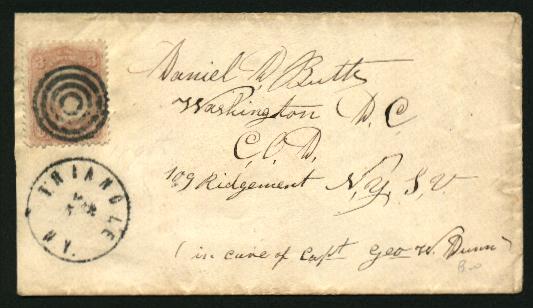 3 3
TRIANGLE
N.Y.
Daniel D. Butts
Washington D. C.
C. O. D.
109 Ridgement N. Y. S. V.
(in care of Capt Geo W. Dunn)